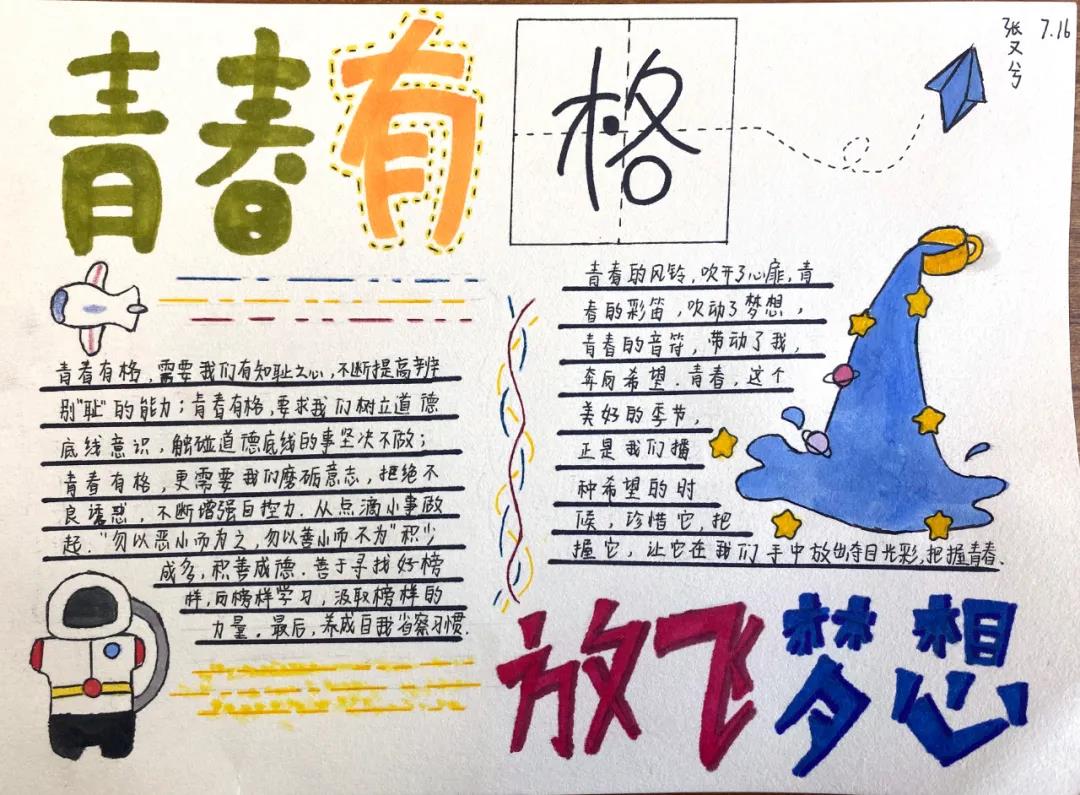 青春有格
张又兮 7.16
青春有格,需要我们有知耻之心,不断提高辨
别"耻"的能力;青春有格,要求我们树立道德
底线意识,触碰道德底线的事坚决不做;
青春有格,更需要我们磨砺意志,拒绝不
良诱惑,不断增强自控力.从点滴小事做
起."勿以恶小而为之,勿以善小而不为"积少
成多,积善成德.善于寻找好榜
样,向榜样学习,汲取榜样的
力量。最后,养成自我省察习惯.
青春的风铃,吹开了心扉,青
春的彩笛,吹动了梦想,
青春的音符,带动了我,
奔向希望.青春,这个
美好的季节,
正是我们播
种希望的时
候,珍惜它,把
握它,让它在我们手中放出夺目光彩,把握青春.
放飞梦想